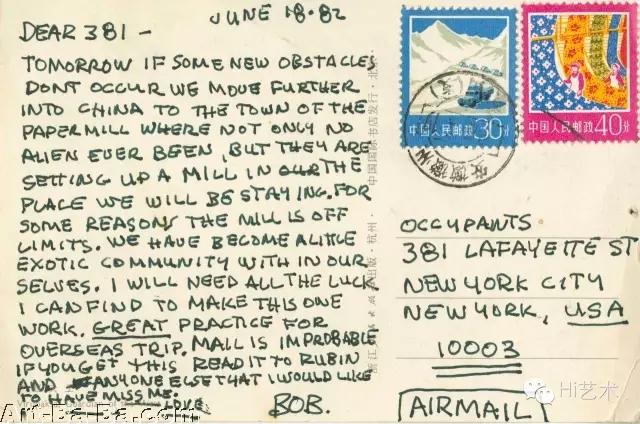 JUNE 18.82
DEAR 381 -
TOMORROW IF SOME NEW OBSTACLES
DONT OCCUR WE MOVE FURTHER
INTO CHINA TO THE TOWN OF THE
PAPERMILL WHERE NOT ONLY NO
ALIEN EVER BEEN, BUT THEY ARE
SETTING UP A MILL IN OUR THE
PLACE WE WILL BE STAYING. FOR
SOME REASONS THE MILL IS OFF
LIMITS. WE HAVE BECOME A LITTLE
EXOTIC COMMUNITY WITH IN OUR
SELVES. I WILL NEED ALL THE LUCK
I CAN FIND TO MAKE THIS ONE
WORK. GREAT PRACTICE FOR
OVERSEAS TRIP. MAIL IS IMPROBABLE
IF YOU GET THIS READ IT TO RUBIN
AND ANYONE ELSE THAT I WOULD LIKE
TO HAVE MISS ME.
LOVE,
BOB.
中国国际书店发行·北京
出版·杭州·
中国人民邮政 30分
中国人民邮政 40分
安徽
OCCUPANTS
381 LAFAYETTE ST
NEW YORK CITY
NEW YORK, USA
10003
AIRMAIL
Hi艺术
Art-Ba-Ba.com